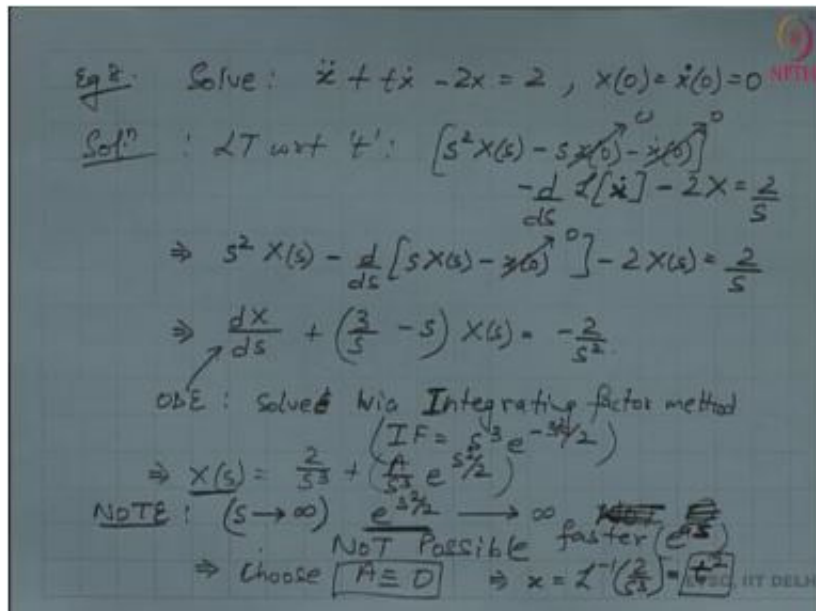 Eg 8. Solve: ẍ + tẋ - 2x = 2, x(0) = ẋ(0) = 0
NPTEL
Solⁿ : LT wrt 't': [s² X(s) - s x(0) - ẋ(0)]
0 0
- d/ds L[ẋ] - 2X = 2/s
⇒ s² X(s) - d/ds [s X(s) - x(0)] - 2X(s) = 2/s
0
⇒ dX/ds + (3/s - s) X(s) = -2/s².
ODE : Solve via Integrating factor method
(IF = s³ e^(-s²/2))
⇒ X(s) = 2/s³ + (A/s³ e^(s²/2))
NOTE : (s → ∞) e^(s²/2) → ∞
NOT Possible faster (e^(as))
⇒ Choose A ≡ 0 ⇒ x = L⁻¹(2/s³) = t²
IIT DELHI